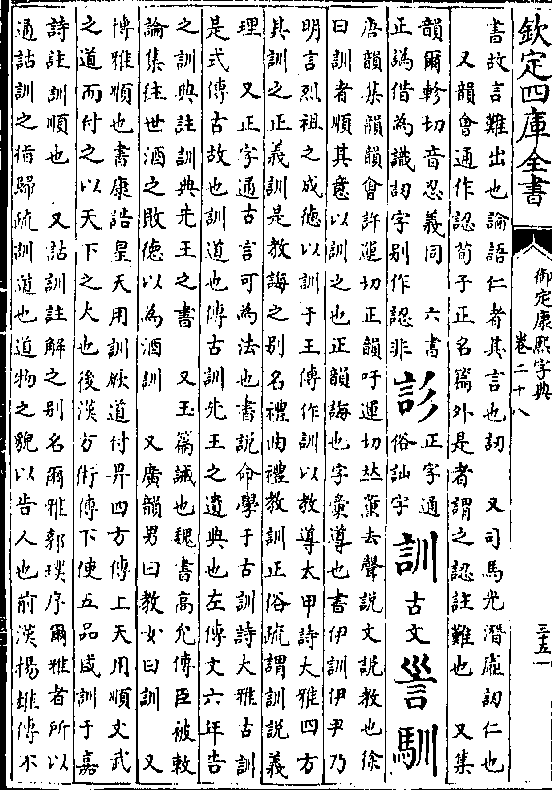 欽定四庫全書
御定康熙字典
卷二十八
書故言難出也論語仁者其言也訒 又司馬光潛虛訒仁也
又韻會通作認荀子正名篇外是者謂之認註難也 又集
韻爾軫切音忍義同 六書
正譌偕為識訒字别作認非
䚲 正字通
俗訕字
訓 古文 馴
唐韻集韻韻會許運切正韻吁運切𠀤薰去聲說文說教也徐
曰訓者順其意以訓之也正韻誨也字彙導也書伊訓伊尹乃
明言烈祖之成德以訓于王傳作訓以教導太甲詩大雅四方
其訓之正義訓是教誨之别名禮曲禮教訓正俗疏謂訓說義
理 又正字通古言可為法也書說命學于古訓詩大雅古訓
是式傳古故也訓道也傳古訓先王之遺典也左傳文六年告
之訓典註訓典先王之書 又玉篇誡也魏書高允傳臣被敕
論集往世酒之敗德以為酒訓 又廣韻男曰教女曰訓 又
博雅順也書康誥皇天用訓厥道付畀四方傳上天用順文武
之道而付之以天下之大也後漢方術傳下使五品咸訓于嘉
詩註訓順也 又詁訓註解之别名爾雅郭璞序爾雅者所以
通詁訓之指歸疏訓道也道物之貌以告人也前漢揚雄傳不